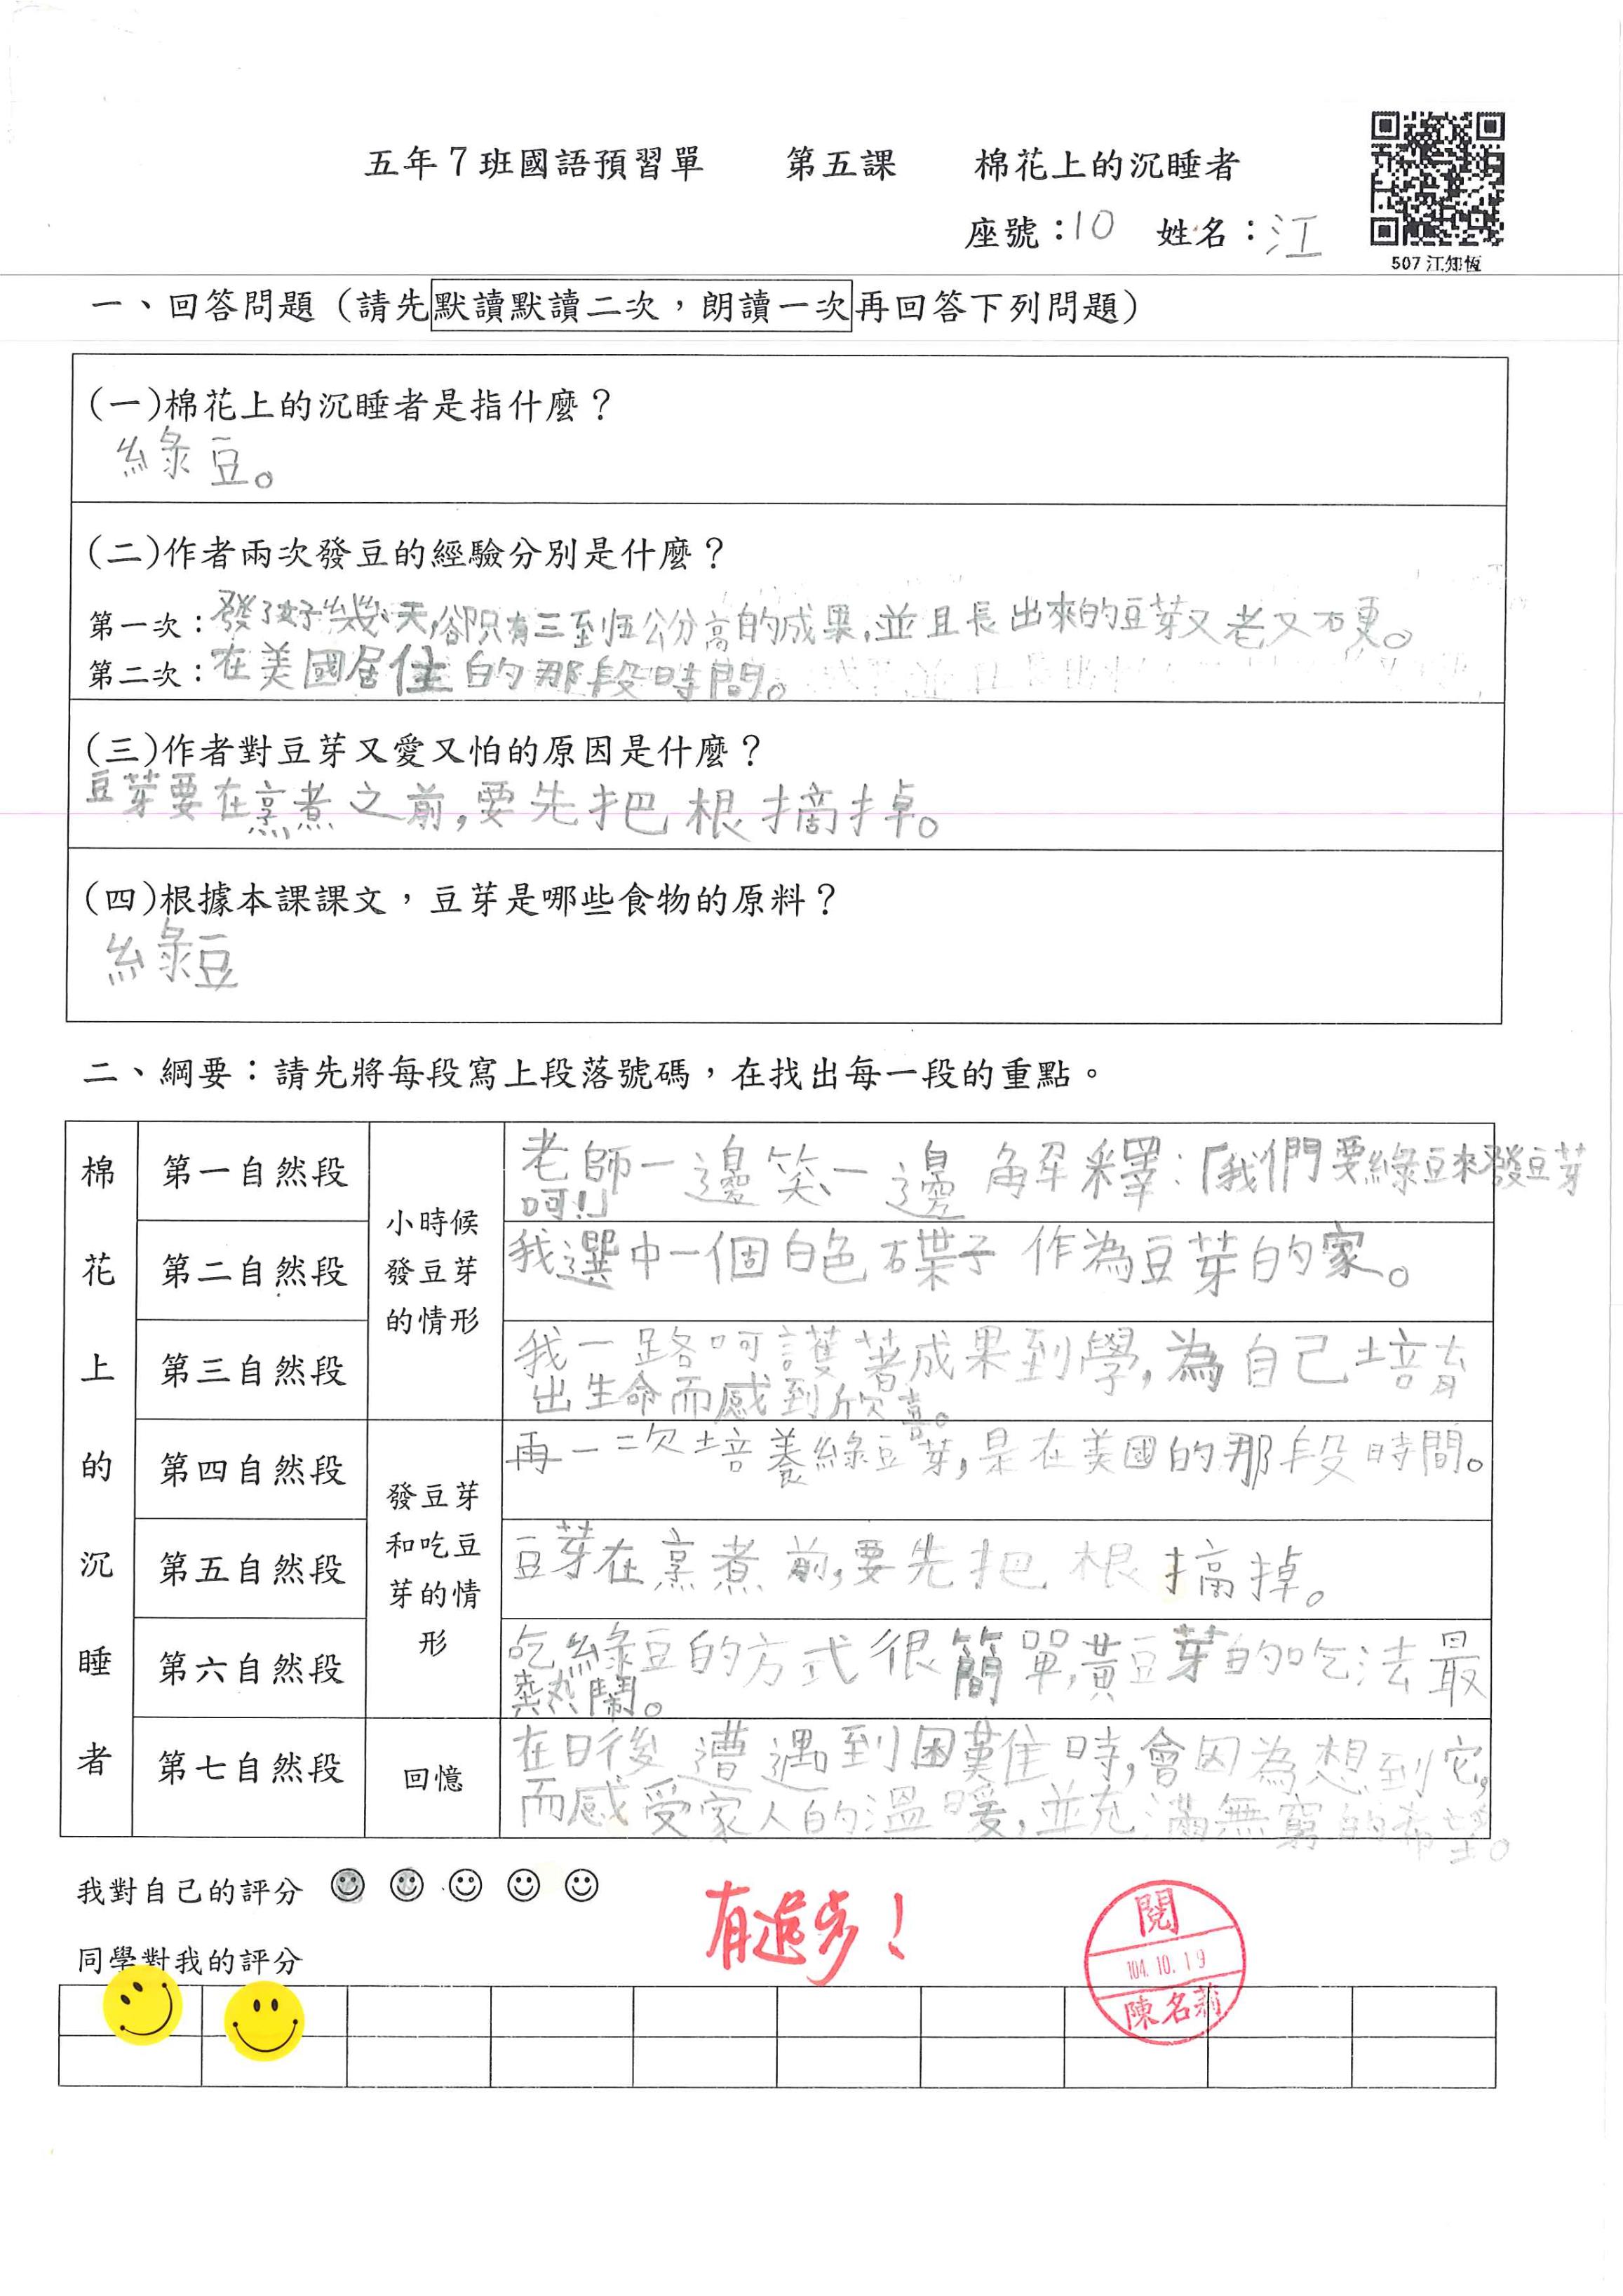 五年7班國語預習單 第五課 棉花上的沉睡者
座號：10 姓名：江
507 江知恆
一、回答問題（請先默讀默讀二次，朗讀一次再回答下列問題）
(一)棉花上的沉睡者是指什麼？
綠豆。
(二)作者兩次發豆的經驗分別是什麼？
第一次：發了好幾天,卻只有三到五公分高的成果,並且長出來的豆芽又老又硬。
第二次：在美國居住的那段時間。
(三)作者對豆芽又愛又怕的原因是什麼？
豆芽要在烹煮之前,要先把根摘掉。
(四)根據本課課文，豆芽是哪些食物的原料？
綠豆
二、綱要：請先將每段寫上段落號碼，在找出每一段的重點。
棉花上的沉睡者
小時候發豆芽的情形
第一自然段 老師一邊笑一邊解釋:「我們要綠豆來發豆芽
呵!」
第二自然段 我選中一個白色碟子作為豆芽的家。
第三自然段 我一路呵護著成果到學,為自己培育
出生命而感到欣喜。
發豆芽和吃豆芽的情形
第四自然段 再一次培養綠豆芽,是在美國的那段時間。
第五自然段 豆芽在烹煮前,要先把根摘掉。
第六自然段 吃綠豆的方式很簡單,黃豆芽的吃法最
熱鬧。
回憶
第七自然段 在日後遭遇到困難時,會因為想到它,
而感受家人的溫暖,並充滿無窮的希望。
我對自己的評分
有進步！
閱
104.10.19
陳名莉
同學對我的評分